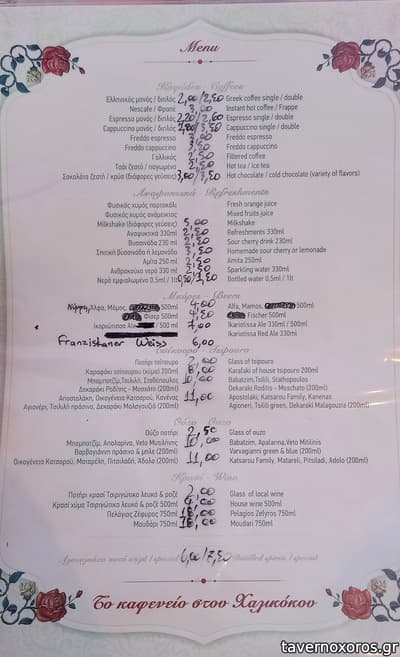 Menu
Καφέδες - Coffees
Ελληνικός μονός / διπλός 2,00/2,50 Greek coffee single / double
Nescafe / Φραπέ 3,00 Instant hot coffee / Frappe
Espresso μονός / διπλός 2,20/2,60 Espresso single / double
Cappuccino μονός / διπλός 2,80/3,50 Cappuccino single / double
Freddo espresso 3,00 Freddo espresso
Freddo cappuccino 3,50 Freddo cappuccino
Γαλλικός 2,50 Filtered coffee
Τσάι ζεστό / παγωμένο 2,50 Hot tea / Ice tea
Σοκολάτα ζεστή / κρύα (διάφορες γεύσεις) 3,00/3,50 Hot chocolate / cold chocolate (variety of flavors)
Αναψυκτικά - Refreshments
Φυσικός χυμός πορτοκάλι Fresh orange juice
Φυσικός χυμός ανάμεικτος Mixed fruits juice
Milkshake (διάφορες γεύσεις) 5,00 Milkshake
Αναψυκτικά 330ml 2,50 Refreshments 330ml
Βυσσινάδα 230 ml 2,50 Sour cherry drink 230ml
Σπιτική βυσσινάδα ή λεμονάδα Homemade sour cherry or lemonade
Αμίτα 250 ml Amita 250ml
Ανθρακούχο νερό 330 ml 2,50 Sparkling water 330ml
Νερό εμφιαλωμένο 0,5ml / 1lt 0,50/1,50 Bottled water 0,5ml / 1lt
Μπύρες - Beers
Άλφα, Μάμος, 500ml) 4,00 Alfa, Mamos, 500ml)
Φίσερ 500ml) 4,50 Fischer 500ml)
Ικαριώτισσα Ale / 500 ml) 7,00 Ikariotissa Ale 330ml / 500ml)
Ikariotissa Red Ale 330ml
Franziskaner Weiss 6,00
Τσίπουρο - Tsipouro
Ποτήρι τσίπουρο 2,00 Glass of tsipouro
Καραφάκι τσίπουρου (χύμα) 200ml 8,00 Karafaki of house tsipouro 200ml
Μπαμπατζίμ,Τσιλιλή, Σταθόπουλος 10,00 Babatzim,Tsilili, Stathopoulos
Δεκαράκι Ροδίτης – Μοσχάτο (200ml) Dekaraki Roditis – Moschato (200ml)
Αποστολάκη, Οικογένεια Κατσαρού, Κανένας 11,00 Apostolaki, Katsarou Family, Kanenas
Αγιονέρι, Τσιλιλή πράσινο, Δεκαράκι Μαλαγουζιά (200ml) Agioneri, Tsilili green, Dekaraki Malagouzia (200ml)
Ούζο - Ouzo
Ούζο ποτήρι 2,50 Glass of ouzo
Μπαμπατζίμ, Απαλαρίνα, Veto Μυτιλήνης 10,00 Babatzim, Apalanna,Veto Mitilinis
Βαρβαγιάννη πράσινο & μπλε (200ml) Varvagianni green & blue (200ml)
Οικογένεια Κατσαρού, Ματαρέλη, Πιτσιλαδή, Άδολο (200ml) 11,00 Katsarou Family, Matareli, Pitsiladi, Adolo (200ml)
Κρασί - Wine
Ποτήρι κρασί Τσιριγώτικο λευκό & ροζέ 2,00 Glass of local wine
Κρασί χύμα Τσιριγώτικο λευκό & ροζέ 500ml House wine 500ml
Πελάγιος Ζέφυρος 750ml 18,00 Pelagios Zefyros 750ml
Μουδάρι 750ml 18,00 Moudari 750ml
6,00/7,50 Distilled spirits / special
Το καφενείο στου Χαλικόκου
tavernoxoros.gr